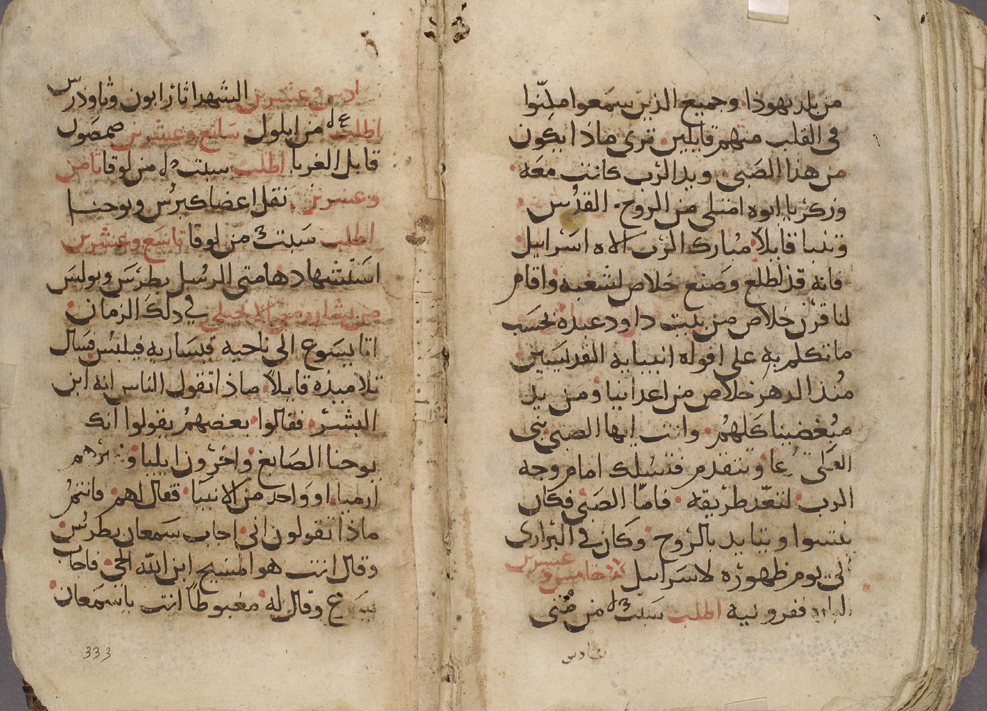 من بلد يهوذا وجميع الذين سمعوا ملّوا
في القلب منهم قايلين ترى ماذا يكون
من هذا الصبي ويد الرب كانت معه
وزكريا ابوه امتلى من الروح القدس
وتنبا قايلا مبارك الرب الاه اسراييل
فانه قد اطلع وصنع خلاص لشعبه واقام
لنا قرن خلاص من بيت داود عبده بحسب
ما تكلم به على افواه انبيايه القديسين
منذ الدهر خلاص من اعداينا ومن يد
مبغضينا كلهم وانت ايها الصبي نبي
العلي وتتقدم فتسلك امام وجه
الرب لتعد طريقه فامّا الصبي فكان
ينشوا ويتايد بالروح وكان في البراري
الى يوم ظهوره لاسراييل خامس وعشرين
ففرونية اطلب سبت من متى
سادس
ادس وعشرين الشهدا ثازابون وثاودرس
اطلب من ايلول سابع وعشرين صمصون
قابل الغربا اطلب سبت من لوقا ثامن
وعشرين نقل اعضا كيرس ويوحنا
اطلب سبت من لوقا تاسع وعشرين
استشهاد هامتي الرسل بطرس وبولس
من بشارة متى الانجيلي في ذلك الزمان
اتا يسوع الى ناحية قيسارية فيلبس فسال
تلاميذه قايلا ماذا تقول الناس انه ابن
البشر فقالوا بعضهم يقولوا انك
يوحنا الصابغ واخرون ايليا وغيرهم
ارميا او واحد من الانبيا فقال لهم فانتم
ماذا تقولون اني اجاب سمعان بطرس
وقال انت هو المسيح ابن الله الحي فاجاب
يسوع وقال له مغبوطا انت ياسمعان
333